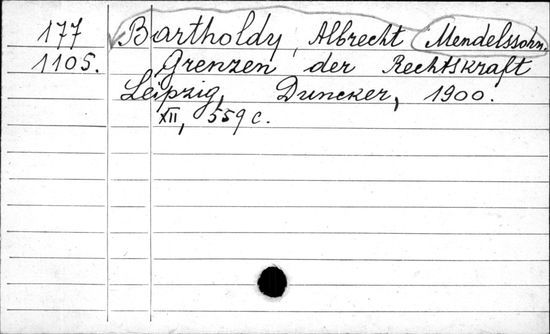 177 Bartholdy, Albrecht Mendelssohn,
1105. Grenzen der Rechtskraft
Leipzig, Duncker, 1900.
XII, 559 c.